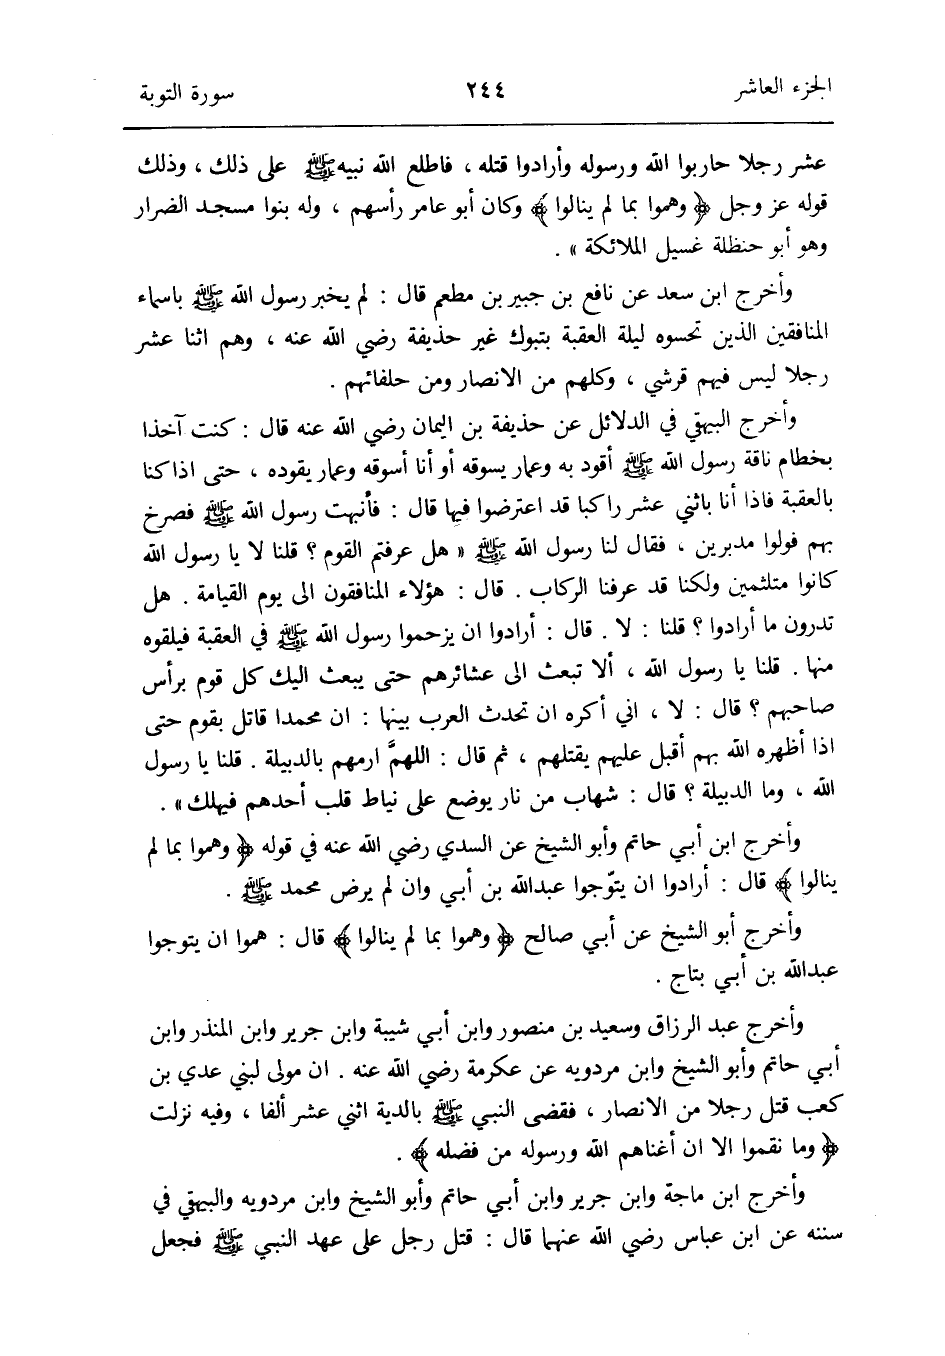 الجزء العاشر ٢٤٤ سورة التوبة
عشر رجلا حاربوا الله ورسوله وأرادوا قتله ، فاطلع الله نبيه ﷺ على ذلك ، وذلك
قوله عز وجل ﴿ وهموا بما لم ينالوا ﴾ وكان أبو عامر رأسهم ، وله بنوا مسجد الضرار
وهو أبو حنظلة غسيل الملائكة » .
وأخرج ابن سعد عن نافع بن جبير بن مطعم قال : لم يخبر رسول الله ﷺ باسماء
المنافقين الذين تحسوه ليلة العقبة بتبوك غير حذيفة رضي الله عنه ، وهم اثنا عشر
رجلا ليس فيهم قرشي ، وكلهم من الانصار ومن حلفائهم .
وأخرج البيهقي في الدلائل عن حذيفة بن اليمان رضي الله عنه قال : كنت آخذا
بخطام ناقة رسول الله ﷺ أقود به وعمار يسوقه أو أنا أسوقه وعمار يقوده ، حتى اذا كنا
بالعقبة فاذا أنا باثني عشر راكبا قد اعترضوا فيها قال : فأنبهت رسول الله ﷺ فصرخ
بهم فولوا مدبرين ، فقال لنا رسول الله ﷺ « هل عرفتم القوم ؟ قلنا لا يا رسول الله
كانوا متلثمين ولكنا قد عرفنا الركاب . قال : هؤلاء المنافقون الى يوم القيامة . هل
تدرون ما أرادوا ؟ قلنا : لا . قال : أرادوا ان يزحموا رسول الله ﷺ في العقبة فيلقوه
منها . قلنا يا رسول الله ، ألا تبعث الى عشائرهم حتى يبعث اليك كل قوم برأس
صاحبهم ؟ قال : لا ، اني أكره ان تحدث العرب بينها : ان محمدا قاتل بقوم حتى
اذا أظهره الله بهم أقبل عليهم يقتلهم ، ثم قال : اللهمَّ ارمهم بالدبيلة . قلنا يا رسول
الله ، وما الدبيلة ؟ قال : شهاب من نار يوضع على نياط قلب أحدهم فيهلك » .
وأخرج ابن أبي حاتم وأبو الشيخ عن السدي رضي الله عنه في قوله ﴿ وهموا بما لم
ينالوا ﴾ قال : أرادوا ان يتوّجوا عبدالله بن أبي وان لم يرض محمد ﷺ .
وأخرج أبو الشيخ عن أبي صالح ﴿ وهموا بما لم ينالوا ﴾ قال : هموا ان يتوجوا
عبدالله بن أبي بتاج .
وأخرج عبد الرزاق وسعيد بن منصور وابن أبي شيبة وابن جرير وابن المنذر وابن
أبي حاتم وأبو الشيخ وابن مردويه عن عكرمة رضي الله عنه . ان مولى لبني عدي بن
كعب قتل رجلا من الانصار ، فقضى النبي ﷺ بالدية اثني عشر ألفا ، وفيه نزلت
﴿ وما نقموا الا ان أغناهم الله ورسوله من فضله ﴾ .
وأخرج ابن ماجة وابن جرير وابن أبي حاتم وأبو الشيخ وابن مردويه والبيهقي في
سننه عن ابن عباس رضي الله عنهما قال : قتل رجل على عهد النبي ﷺ فجعل